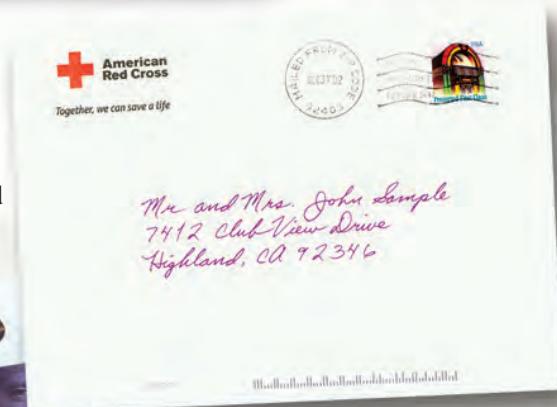 American
Red Cross
Together, we can save a life
MAILED FROM ZIP CODE
USA
Presorted First-Class
Mr. and Mrs. John Sample
7412 Club View Drive
Highland, CA 92346